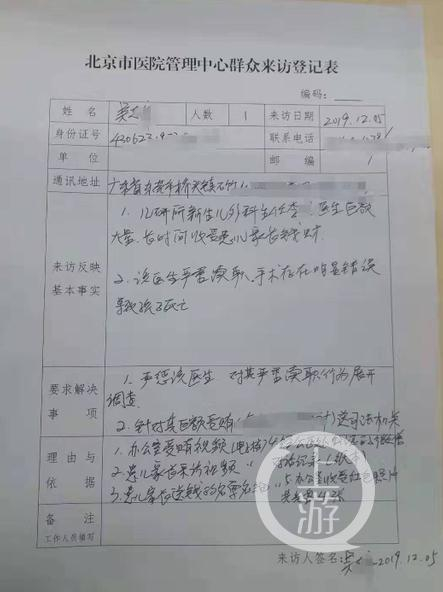 北京市医院管理中心群众来访登记表
编码：
姓 名 吴 人数 1 来访日期 2019.12.05
身份证号 430623 联系电话
单 位 邮 编 /
通讯地址 广东省东莞市桥头镇石竹
来访反映
基本事实
1. 儿研所新生儿外科主任李 医生巨额
大量、长时间收受患儿家长钱财.
2. 该医生严重渎职、手术存在明显错误
导致孩子死亡
要求解决
事 项
1. 严惩该医生 对其严重渎职行为展开
调查.
2. 针对其巨额受贿 送司法机关
理由与
依 据
1. 办公室受贿视频
2. 患儿家长采访视频
5. 办公室收受红包照片
3. 患儿家长送钱的
备 注
工作人员填写
来访人签名: 吴 2019.12.05
上游